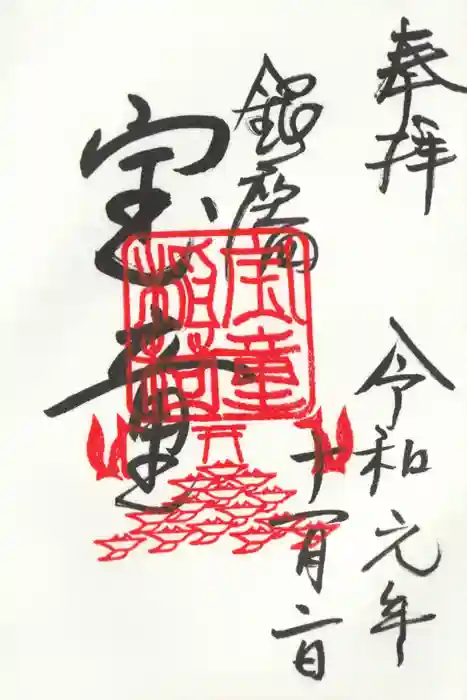 奉拝
令和元年
十一月二日
銀座
宝童
宝童
稲荷